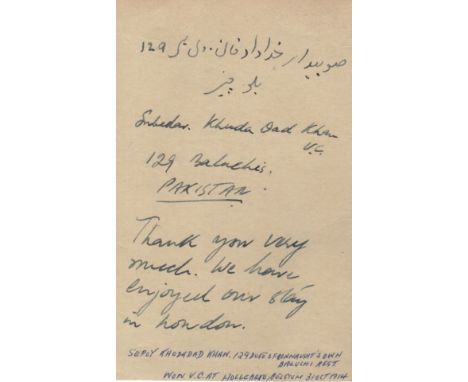 صوبیدار خداداد خان وی سی 129
بلوچیز
Subedar. Khuda Dad Khan
V.C.
129 Baluchis.
PAKISTAN
Thank you very
much. We have
enjoyed our stay
in London.
SEPOY KHUDADAD KHAN. 129 DUKE OF CONNAUGHT'S OWN
BALUCHI REGT.
WON V.C. AT HOLLEBEKE, BELGIUM 31 OCT 1914